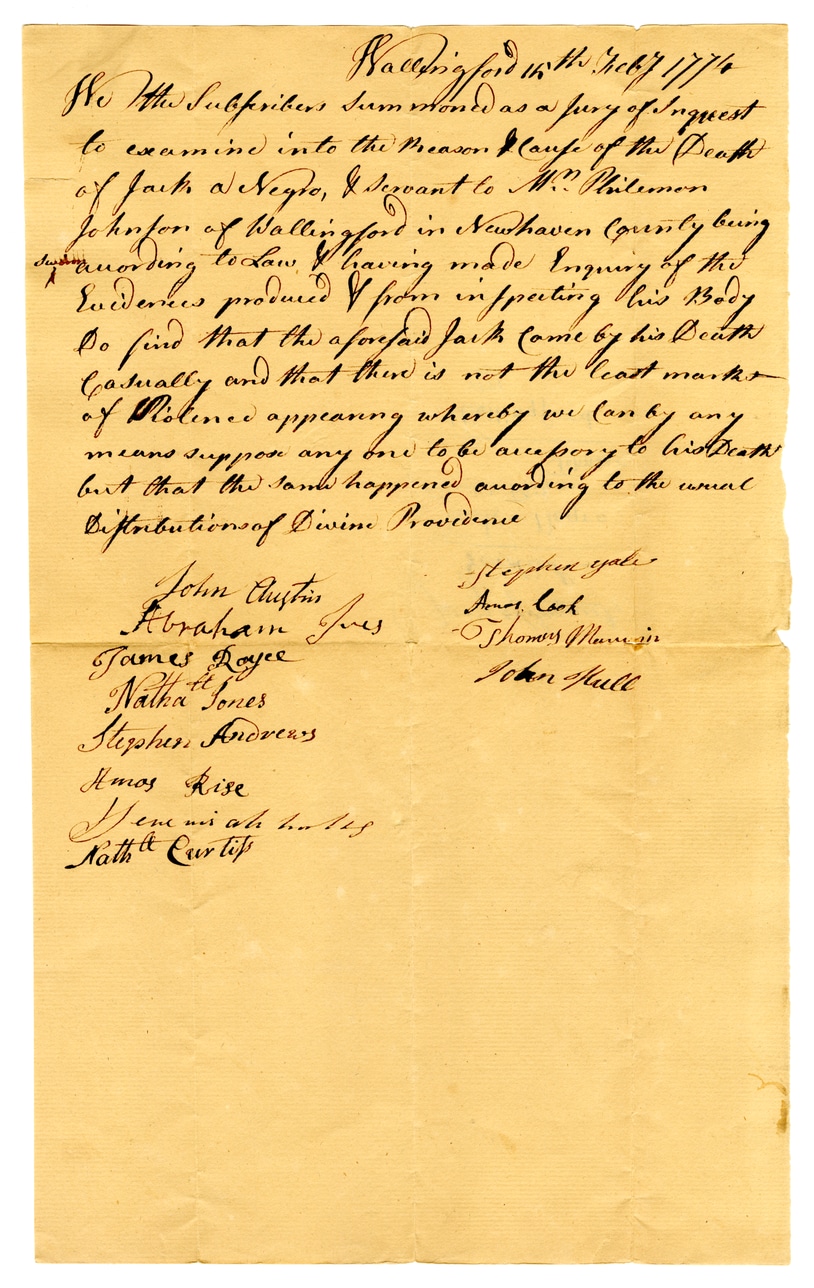 Wallingford 15th Feby 1774
We the Subscribers Summoned as a Jury of Inquest
to examine into the Reason & Cause of the Death
of Jack a Negro, & Servant to Mrn Philemon
Johnson of Wallingford in Newhaven County being
sworn
according to Law & having made Enquiry of the
Evidences produced & from inspecting his Body
Do find that the aforesaid Jack Came by his Death
Casually and that there is not the least marks
of Violence appearing whereby we Can by any
means suppose any one to be accessory to his Death
but that the same happened according to the usual
Distributions of Divine Providence
John Austin
Abraham Ives
James Royce
Nathall Jones
Stephen Andrews
Amos Rise
Jeremiah
Nathll Curtiss
Stephen Yale
Amos Cook
Thomas
John Hull